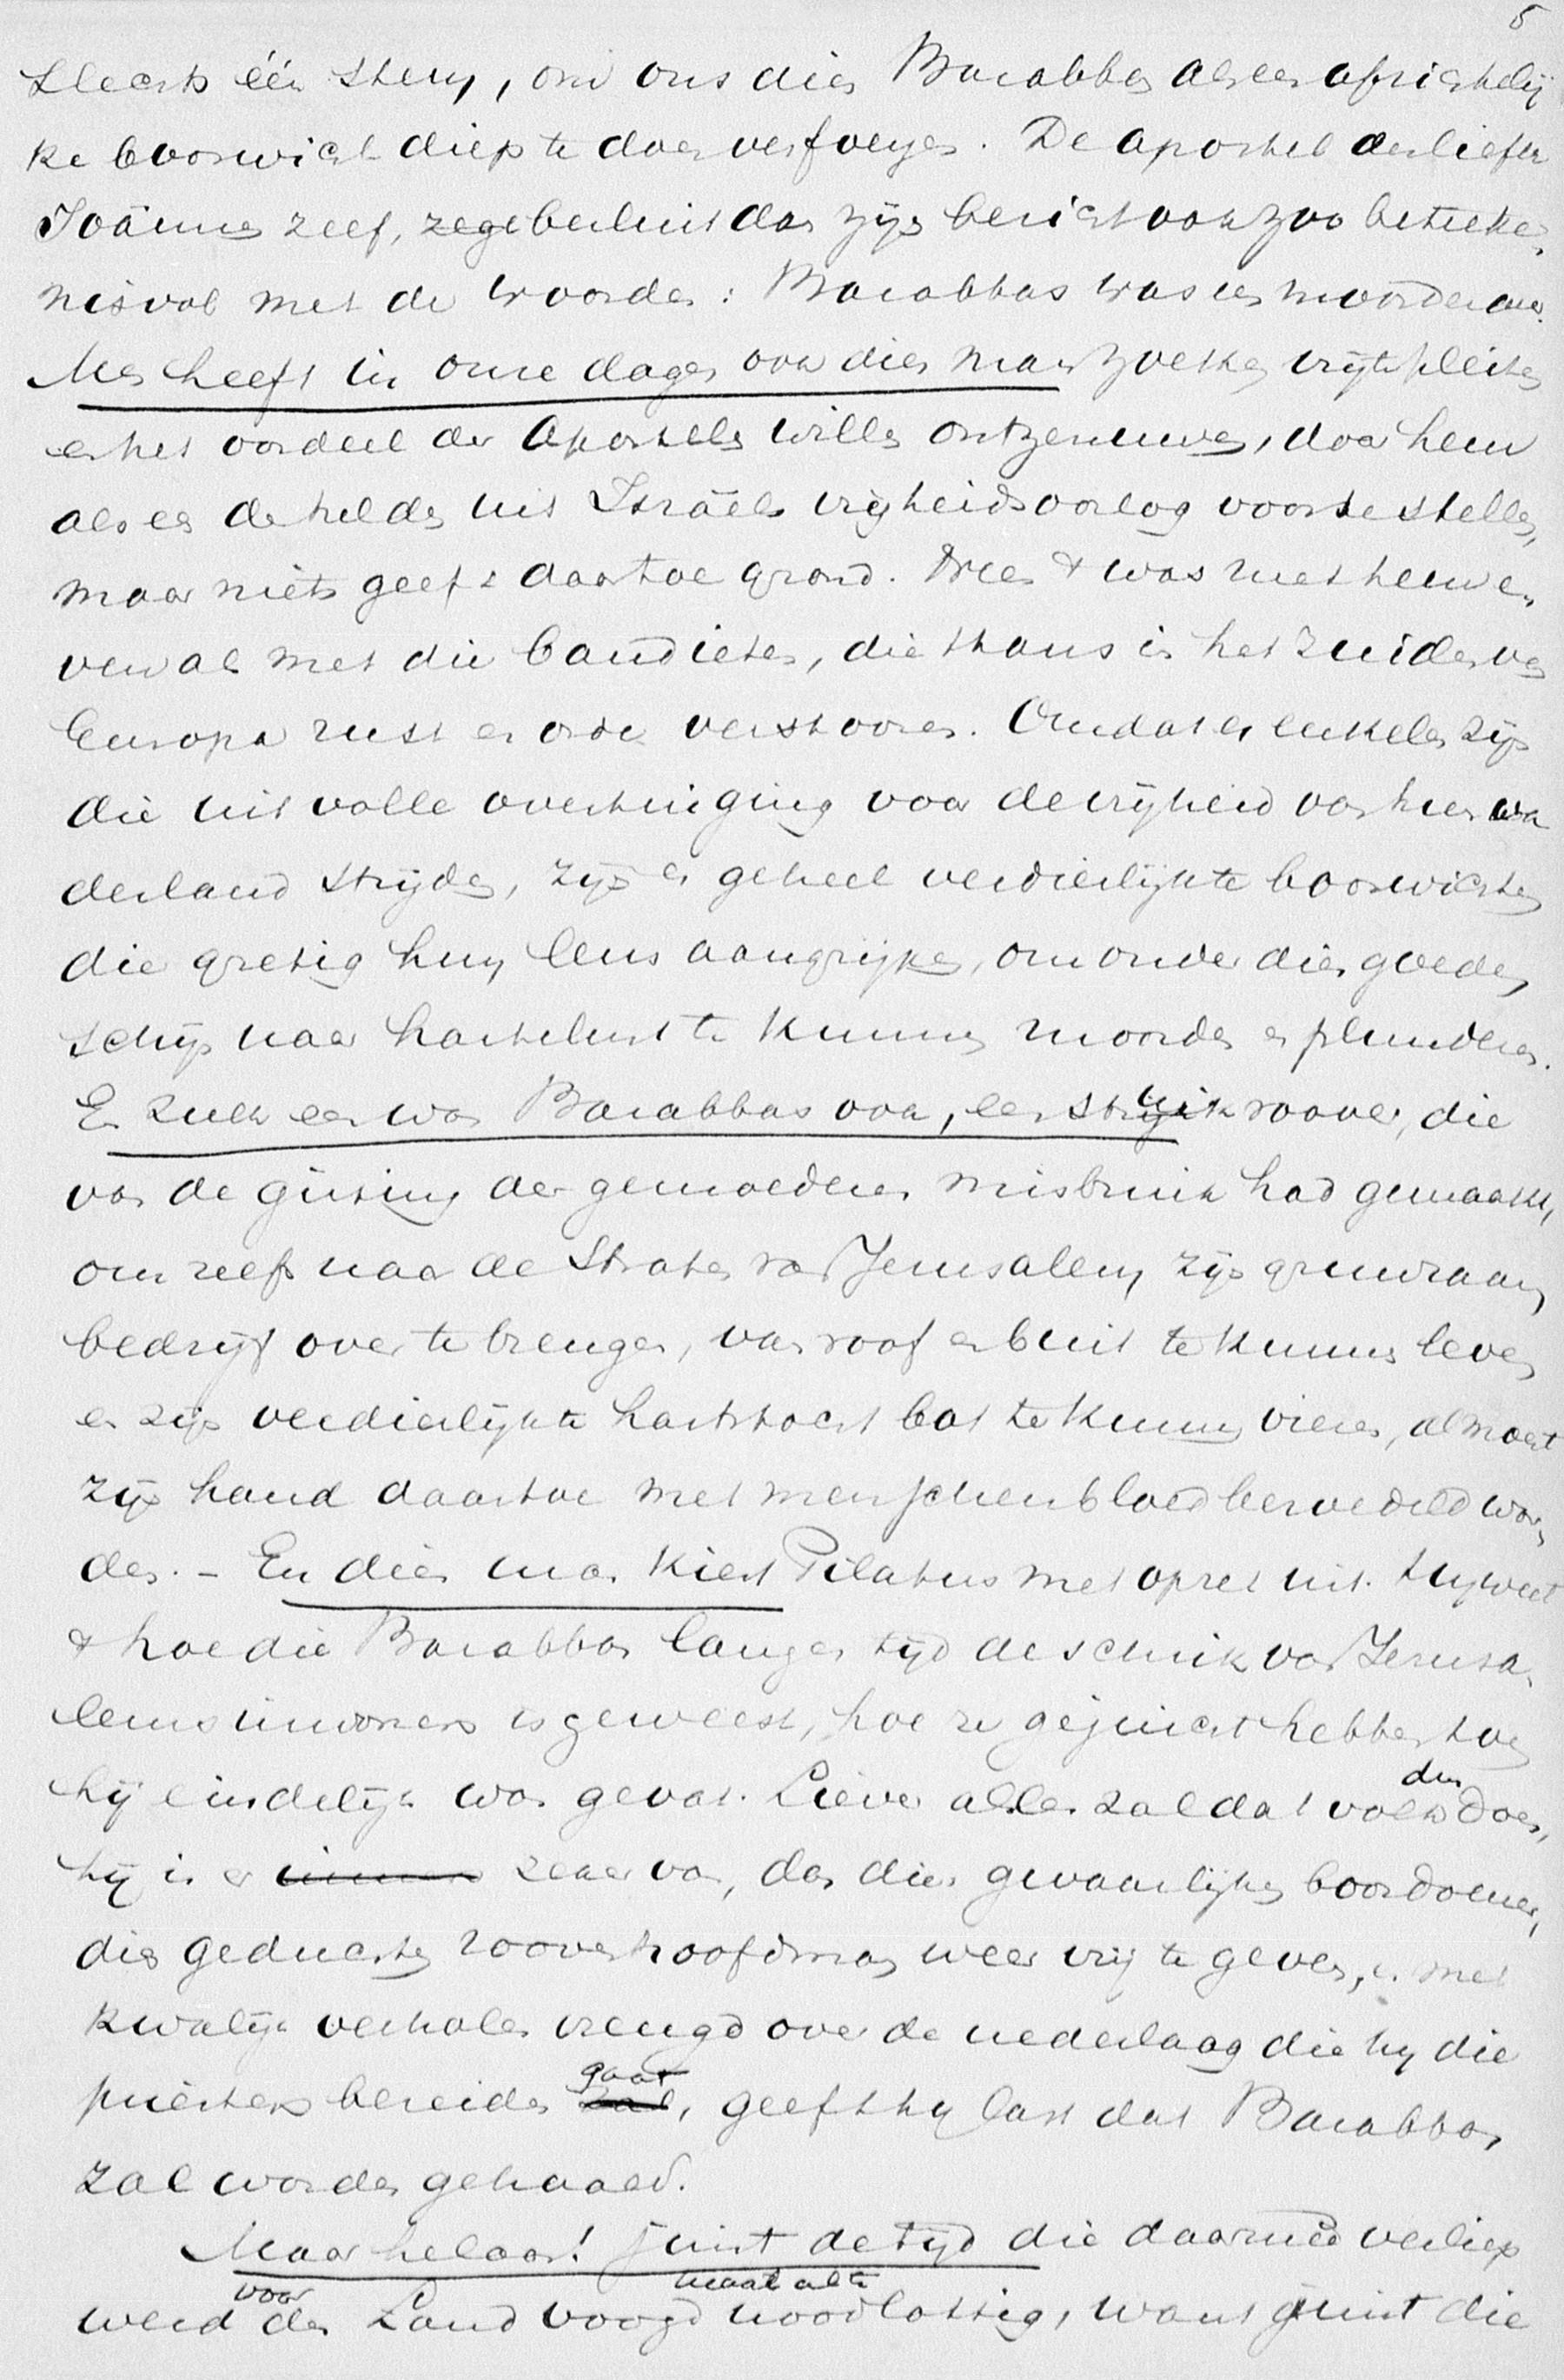 5
slechts één stem, om ons dien Barabbas als een afzichtelij
ke booswicht diep te doen verfoeyen. De apostel der liefde
Joännes zelf, zege besluit dan zijn bericht ook zoo beteeke,
nisvol met de woorden: Barabbas was een moordenaar.
Men heeft in onze dagen ook dien man zoeken vrij te pleiten
en het oordeel der Apostels willen ontzenuwen, door hem
als een der helden uit Israëls vrijheidsoorlog voor te stellen,
maar niets geeft daartoe grond. Neen & was met hem e,
venals met die bandieten, die thans in het Zuiden van
Europa rust en orde verstooren. Omdat er enkelen zijn
die uit volle overtuiging voor de vrijheid van hun va
derland strijden, zijn er geheel verdierlijkte booswichten
die gretig hun leus aangrijpen, om onder dien goeden
schijn naar hartelust te kunnen moorden en plunderen.
En zulk een was Barabbas ook, een struikroover, die
van de gisting der gemoederen misbruik had gemaakt,
om zelfs naar de straten van Jerusalem zijn gruwzaam
bedrijf over te brengen, van roof en buit te kunnen leven
en zijn verdierlijkte hartstocht bot te kunnen vieren, al moest
zijn hand daartoe met menschenbloed bezoedeld wor,
den. - En dien man kiest Pilatus met opzet uit. Hij weet
& hoe die Barabbas langen tijd de schrik van Jerusa,
lems inwoners is geweest, hoe ze gejuicht hebben toen
hij eindelijk was gevat. Liever alles zal dat volk dus doen,
hij is er immers zeker van, dan dien gevaarlijken boosdoener,
dien geduchten rooverhoofdman weer vrij te geven, en met
kwalijk verholen vreugd over de nederlaag die hij die
priesters bereiden zal gaat, geeft hij last dat Barabbas
zal worden gehaald.
Maar helaas! juist de tijd die daarmeê verliep
werd voor den Landvoogd maar al te noodlottig, want juist die